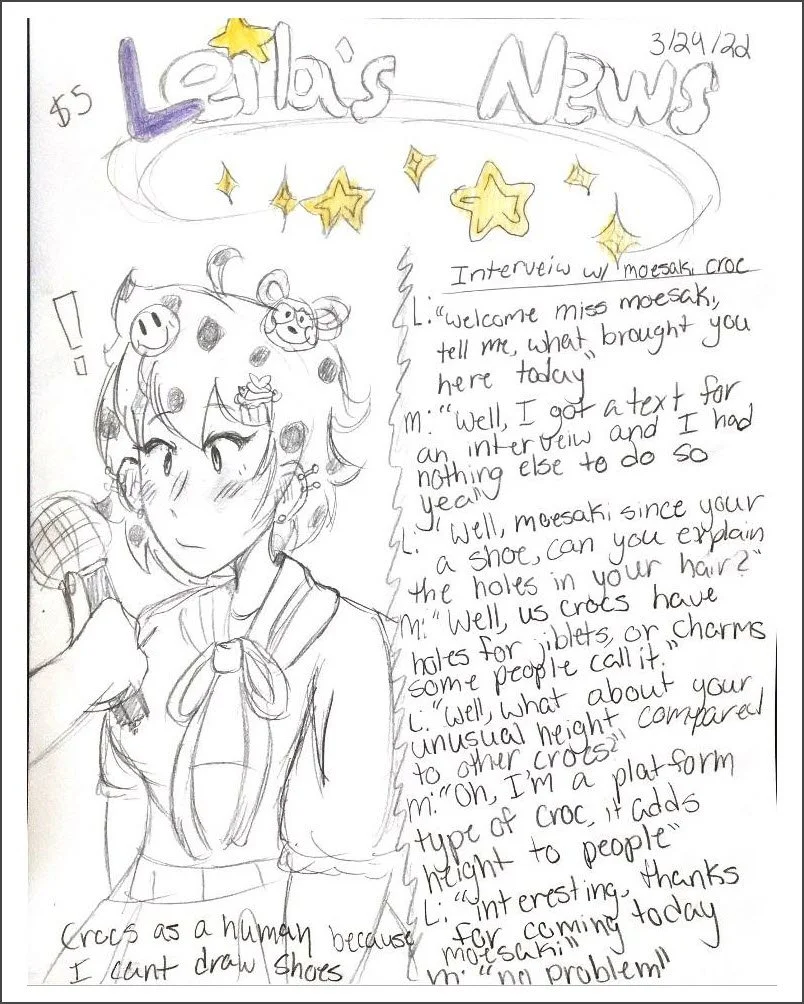 3/29/22
$5
Leila's News
!
Interveiw w/ moesaki croc
L: "welcome miss moesaki,
tell me, what brought you
here today"
m: "Well, I got a text for
an interveiw and I had
nothing else to do so
yeah"
L: "Well, moesaki since your
a shoe, can you explain
the holes in your hair?"
m: "Well, us crocs have
holes for jiblets, or charms
some people call it."
L: "Well, what about your
unusual height compared
to other crocs?"
m: "Oh, I'm a platform
type of croc, it adds
height to people"
L: "interesting, thanks
for coming today
moesaki"
m: "no problem"
Crocs as a human because
I cant draw shoes